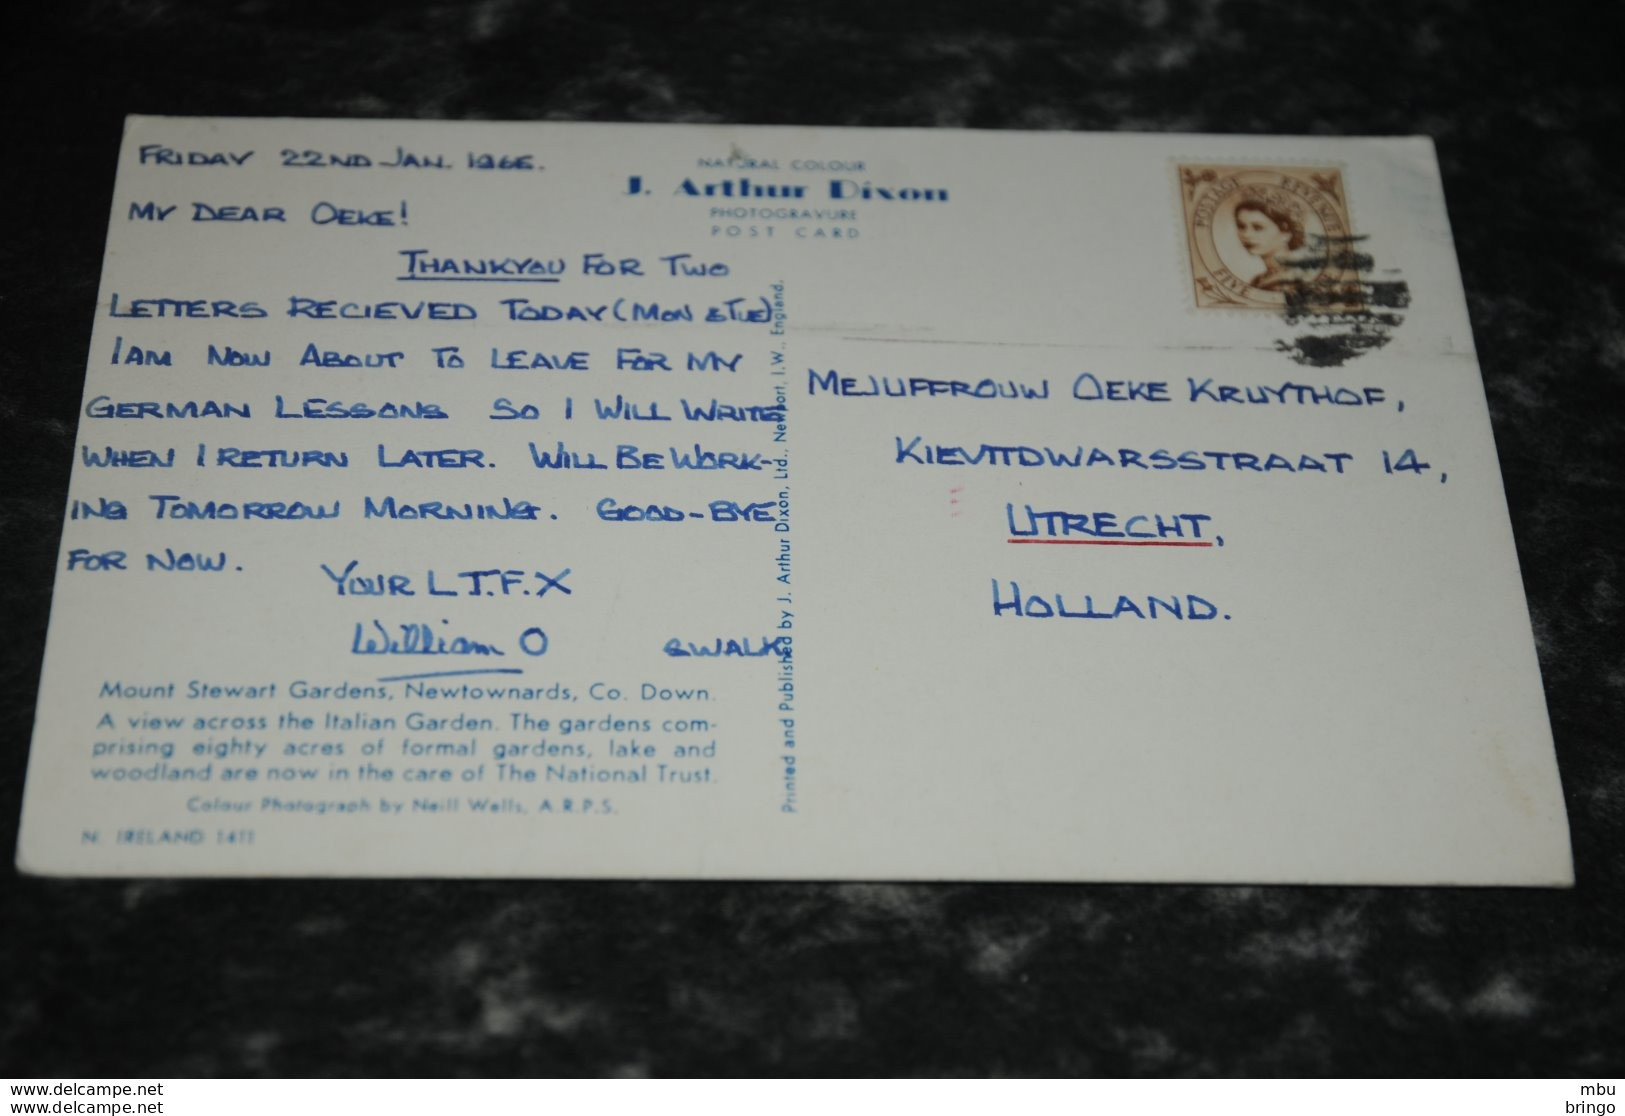 FRIDAY 22ND JAN. 1965.
MY DEAR OEKE!
THANKYOU FOR TWO
LETTERS RECIEVED TODAY (MON & TUE)
I AM NOW ABOUT TO LEAVE FOR MY
GERMAN LESSONS SO I WILL WRITE
WHEN I RETURN LATER. WILL BE WORK-
ING TOMORROW MORNING. GOOD-BYE
FOR NOW.
YOUR L.T.F.X
William O
SWALK
Mount Stewart Gardens, Newtownards, Co. Down.
A view across the Italian Garden. The gardens com-
prising eighty acres of formal gardens, lake and
woodland are now in the care of The National Trust.
Colour Photograph by Neill Wells, A.R.P.S.
N. IRELAND 1411
NATURAL COLOUR
J. Arthur Dixon
PHOTOGRAVURE
POST CARD
Printed and Published by J. Arthur Dixon, Ltd., Newport, I.W., England.
POSTAGE REVENUE
FIVE
MEJUFFROUW OEKE KRUYTHOF,
KIEVITDWARSSTRAAT 14,
UTRECHT,
HOLLAND.
mbu
delcampe.net
bringo
delcampe.net